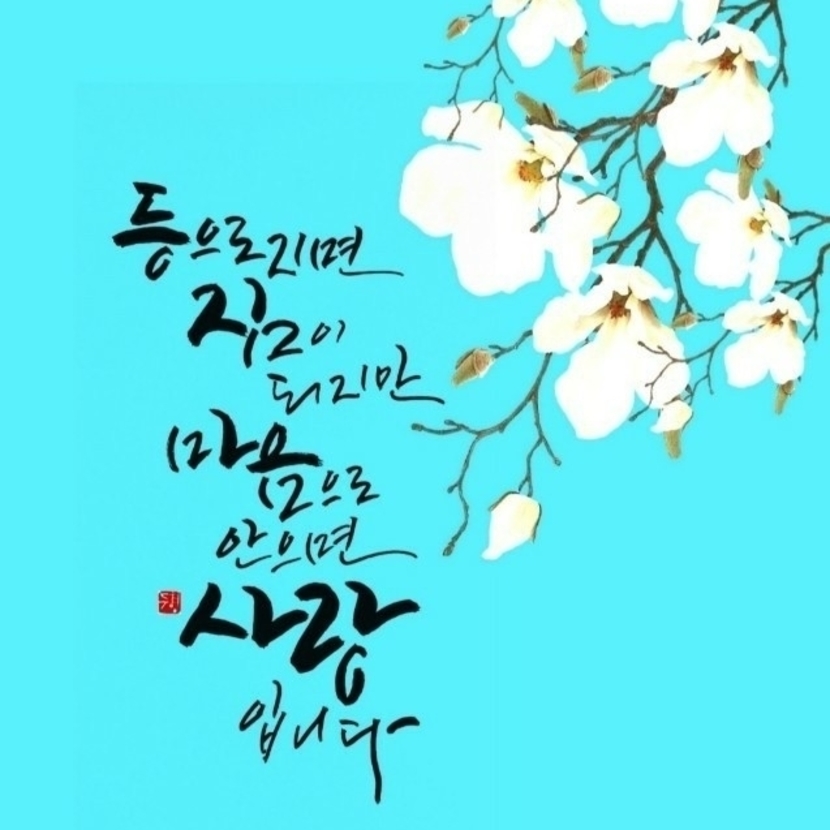 등으로지면
짐이
되지만
마음으로
안으면
사랑
입니다